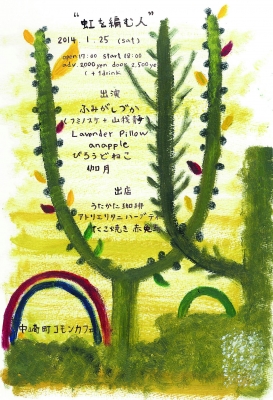 "虹を編む人"
2014.1.25 (sat)
open 17:00 start 18:00
adv. 2000 yen door 2,500 yen
(+1drink
出演
ふみがしづか
(フミノスケ+山本静)
Lavender Pillow
anapple
ぴろうどねこ
伽月
出店
うたかた珈琲
アトリエリタニハーブティ
たこ焼き
中崎町コモンカフェ